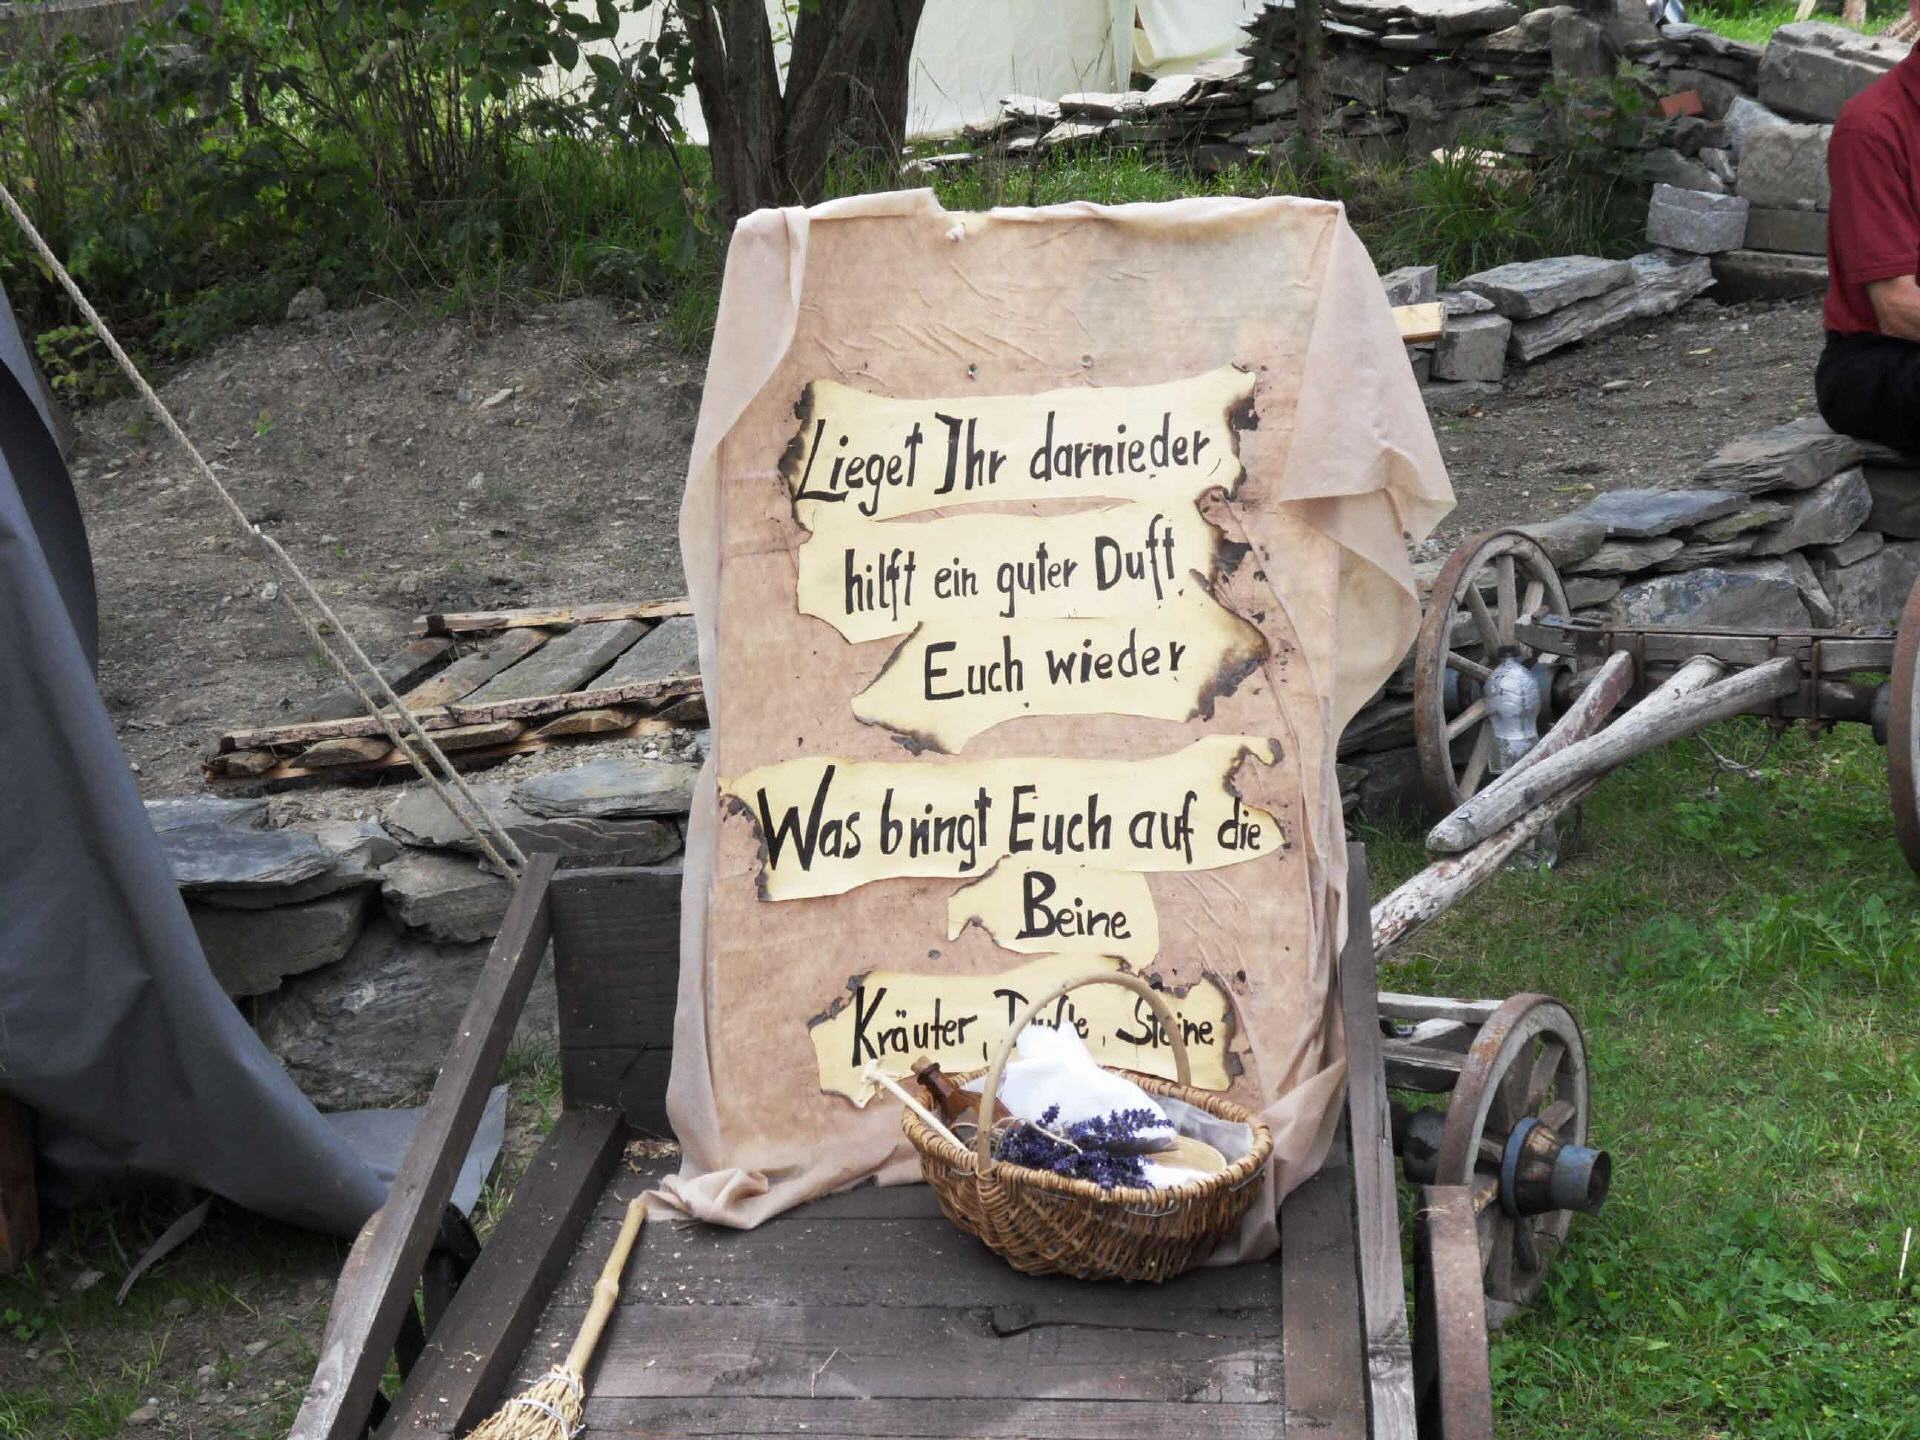 Lieget Ihr darnieder,
hilft ein guter Duft
Euch wieder
Was bringt Euch auf die
Beine
Kräuter, Düfte, Steine